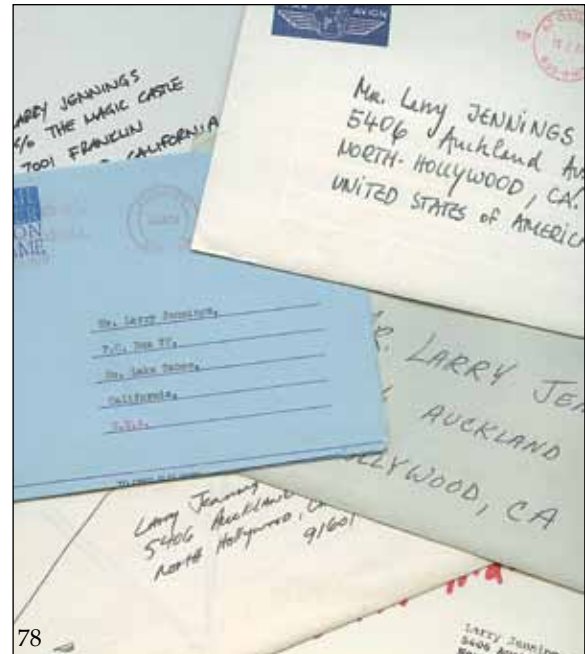 LARRY JENNINGS
c/o THE MAGIC CASTLE
7001 FRANKLIN
CALIFORNIA
AVION
Mr. Larry JENNINGS
5406 Auckland
NORTH-HOLLYWOOD, CA.
UNITED STATES of AMERICA
Mr. Larry Jennings,
P.O. Box
So. Lake Tahoe,
California,
U.S.A.
R. LARRY JEN
AUCKLAND
LLYWOOD, CA
Larry Jenning
5406 Auckland
North Hollywood, CA
91601
Larry Jennings
5406
78